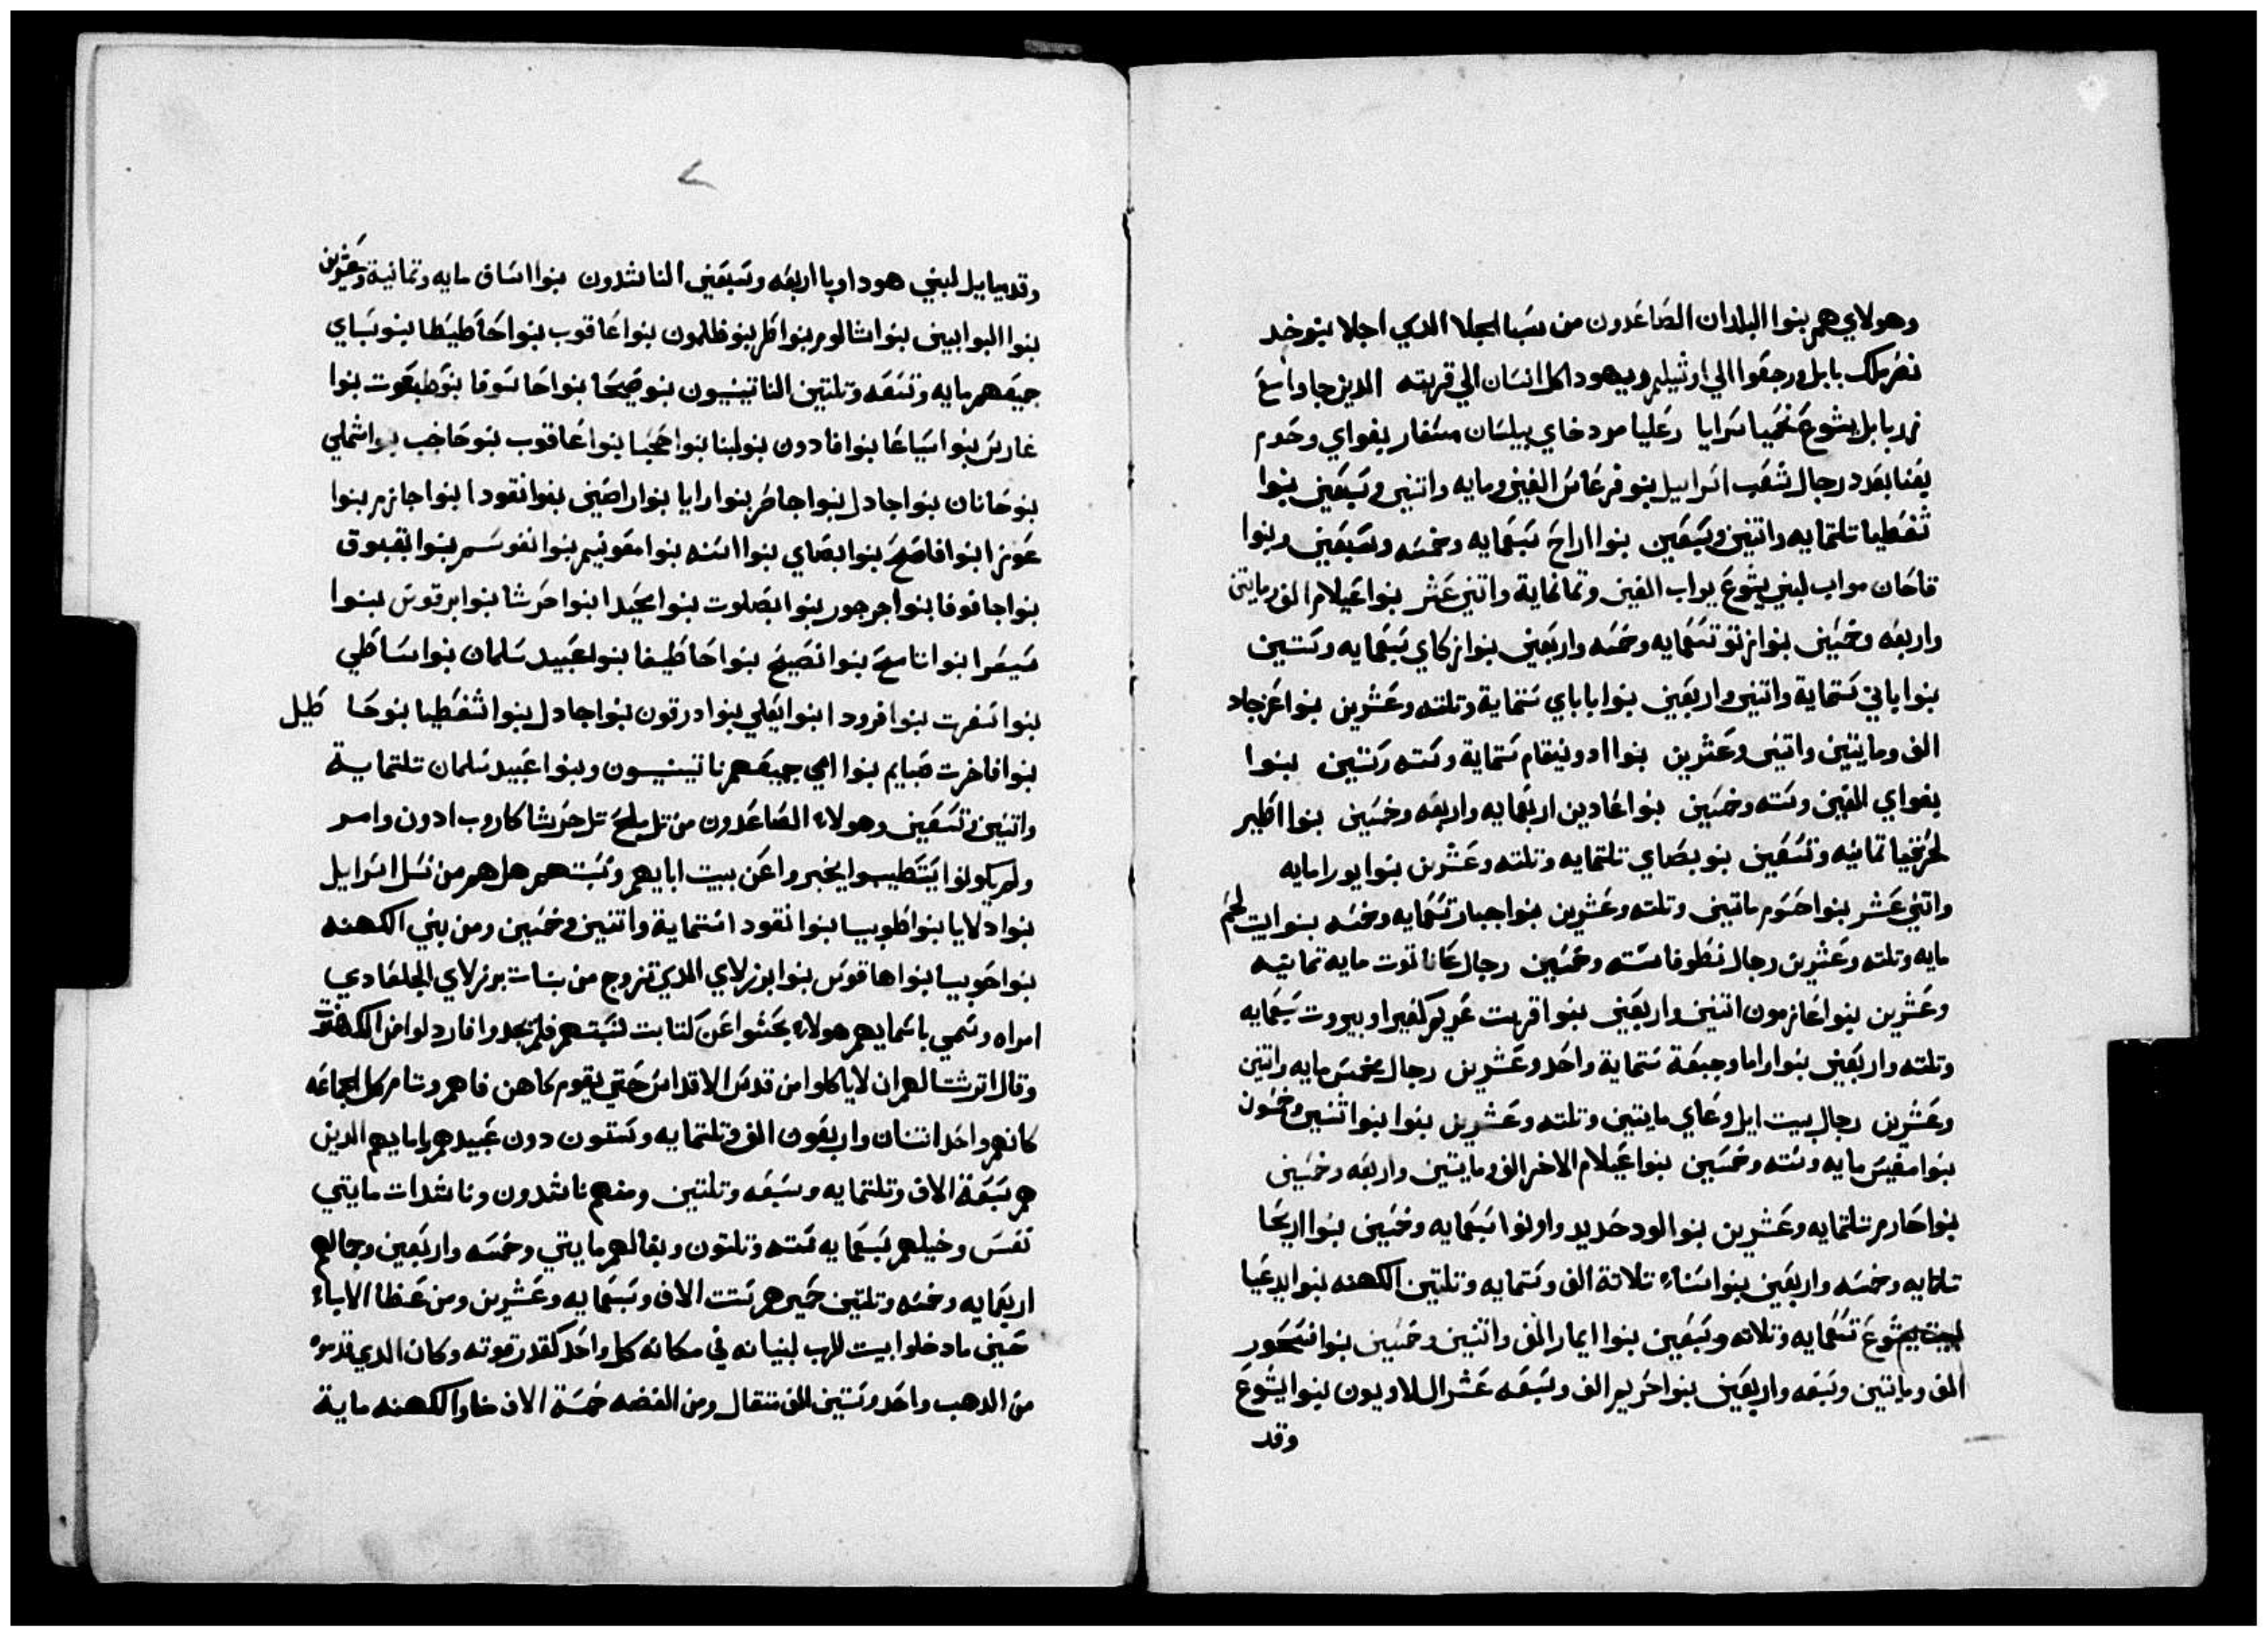 وهولاي هم بنوا البلدان الصاعدون من سبا الجلا الدي اجلا بنوخد
نصر ملك بابل ورجعوا الي اورشيلم ويهودا كل انسان الي قريته الدين جاوا مع
زربابل يشوع نحميا سرايا رعليا مردخاي بيلسان مسفار بغواي رحوم
بعنا بعدد رجال شعب اسراييل بنو فرعاس الفين ومايه واتنين وسبعين بنوا
شفطيا تلتمايه واتنين وسبعين بنوا اراح سبعمايه وخمسه وسبعين وبنوا
فاحات مواب لبني يشوع يواب الفين وتمانماية واتني عشر بنوا عيلام الف ومايتين
واربعه وخمسين بنوا زتو تسعمايه وخمسه واربعين بنوا زكاي سبعمايه وستين
بنوا باني ستماية واتنين واربعين بنوا باباي ستماية وتلته وعشرين بنوا عزجاد
الف ومايتين واتنين وعشرين بنوا ادونيقام ستماية وسته وستين بنوا
بغواي الفين وسته وخمسين بنوا عادين اربعمايه واربعه وخمسين بنوا اطير
لحزقيا تمانيه وتسعين بنو بصاي تلتمايه وتلته وعشرين بنوا يورا مايه
واتني عشر بنوا حشوم ماتين وتلته وعشرين بنوا جبار تسعمايه وخمسه بنوا بيت لحم
مايه وتلته وعشرين رجال نطوفا سته وخمسين رجال عاناتوت مايه تمانيه
وعشرين بنوا عازمون اتنين واربعين بنوا قريت عريم كفيرا وبيروت سبعمايه
وتلته واربعين بنوا راما وجبعة ستماية واحد وعشرين رجال مخمس مايه واتنين
وعشرين رجال بيت ايل وعاي مايتين وتلته وعشرين بنوا نبوا اتنين وخمسون
بنوا مغبيس مايه وسته وخمسين بنوا عيلام الاخر الف ومايتين واربعه وخمسين
بنوا حارم تلتمايه وعشرين بنوا لود حديد واونوا سبعمايه وخمسين بنوا اريحا
تلتمايه وخمسه واربعين بنوا سناء تلاتة الف وستمايه وتلتين الكهنه بنوا يدعيا
لبيت يشوع تسعمايه وتلاته وسبعين بنوا ايمار الف واتنين وخمسين بنوا فسحور
الف ومايتين وسبعه واربعين بنوا حريم الف وسبعه عشر اللاويون بنوا يشوع
وقد
٧
وقدميايل لبني هوداويا اربعه وسبعين الناشدون بنوا اساف مايه وتمانية وعشرين
بنوا البوابين بنوا شالوم بنوا طر بنو طلمون بنوا عاقوب بنوا حاطيطا بنو بساي
جميعهم مايه وتسعه وتلتين الناتينيون بنو صيحا بنوا حاسوفا بنو طبعوت بنوا
غارس بنوا سياعا بنوا فادون بنو لبنا بنوا حجبا بنوا عاقوب بنو حاخب بنوا شملي
بنو حانان بنوا جادل بنوا جاطر بنوا رايا بنوا راصين بنوا نقودا بنوا جازم بنوا
عوزا بنوا فاصح بنوا بصاي بنوا اسنه بنوا معونيم بنوا نفوسيم بنوا بقبوق
بنوا حاقوفا بنوا حرجور بنوا بصلوت بنوا محيدا بنوا حرشا بنوا برقوس بنوا
سيسرا بنوا تامح بنوا نصيح بنوا حاطيفا بنوا عبيد سلمان بنوا ساطي
بنوا سفرت بنوا فرودا بنوا يعلي بنوا درقون بنوا جادل بنوا شفطيا بنو حا طيل
بنوا فاخرت صبايم بنوا امي جميعهم ناتينيون وبنوا عبيد سلمان تلتماية
واتنين وتسعين وهولاء الصاعدون من تل ملح تل حرشا كاروب ادون وامر
ولم يكونوا يستطيعوا يخبروا عن بيت ابايهم ونسبتهم هل هم من نسل اسرايل
بنوا دلايا بنوا طوبيا بنوا نقودا ستماية واتنين وخمسين ومن بني الكهنه
بنوا حوبيا بنوا هاقوس بنوا برزلاي الدي تزوج من بنات برزلاي الجلعادي
امراه وسمي باسمايهم هولاء بحثوا عن كتابت نسبتهم فلم يجدوا فاردلوا من الكهنوت
وقال اترشتا لهم ان لا ياكلوا من قدس الاقداس حتي يقوم كاهن فاهم وتام كل الجماعه
كانهم واحد اتنان واربعون الف وتلتمايه وستون دون عبيدهم وامايهم الدين
هم سبعة الاف وتلتمايه وسبعه وتلتين ومنهم ناشدون وناشدات مايتي
نفس وخيلهم سبعمايه سته وتلتون وبغالهم مايتي وخمسه واربعين وجمالهم
اربعمايه وخمسه وتلتين حميرهم ستت الاف وسبعمايه وعشرين ومن عظما الاباء
حين ما دخلوا بيت الرب لبنيانه في مكانه كل واحد كقدر قوته وكان الدي قدموه
من الدهب واحد وستين الف متقال ومن الفضه خمسة الاف منا والكهنه ماية